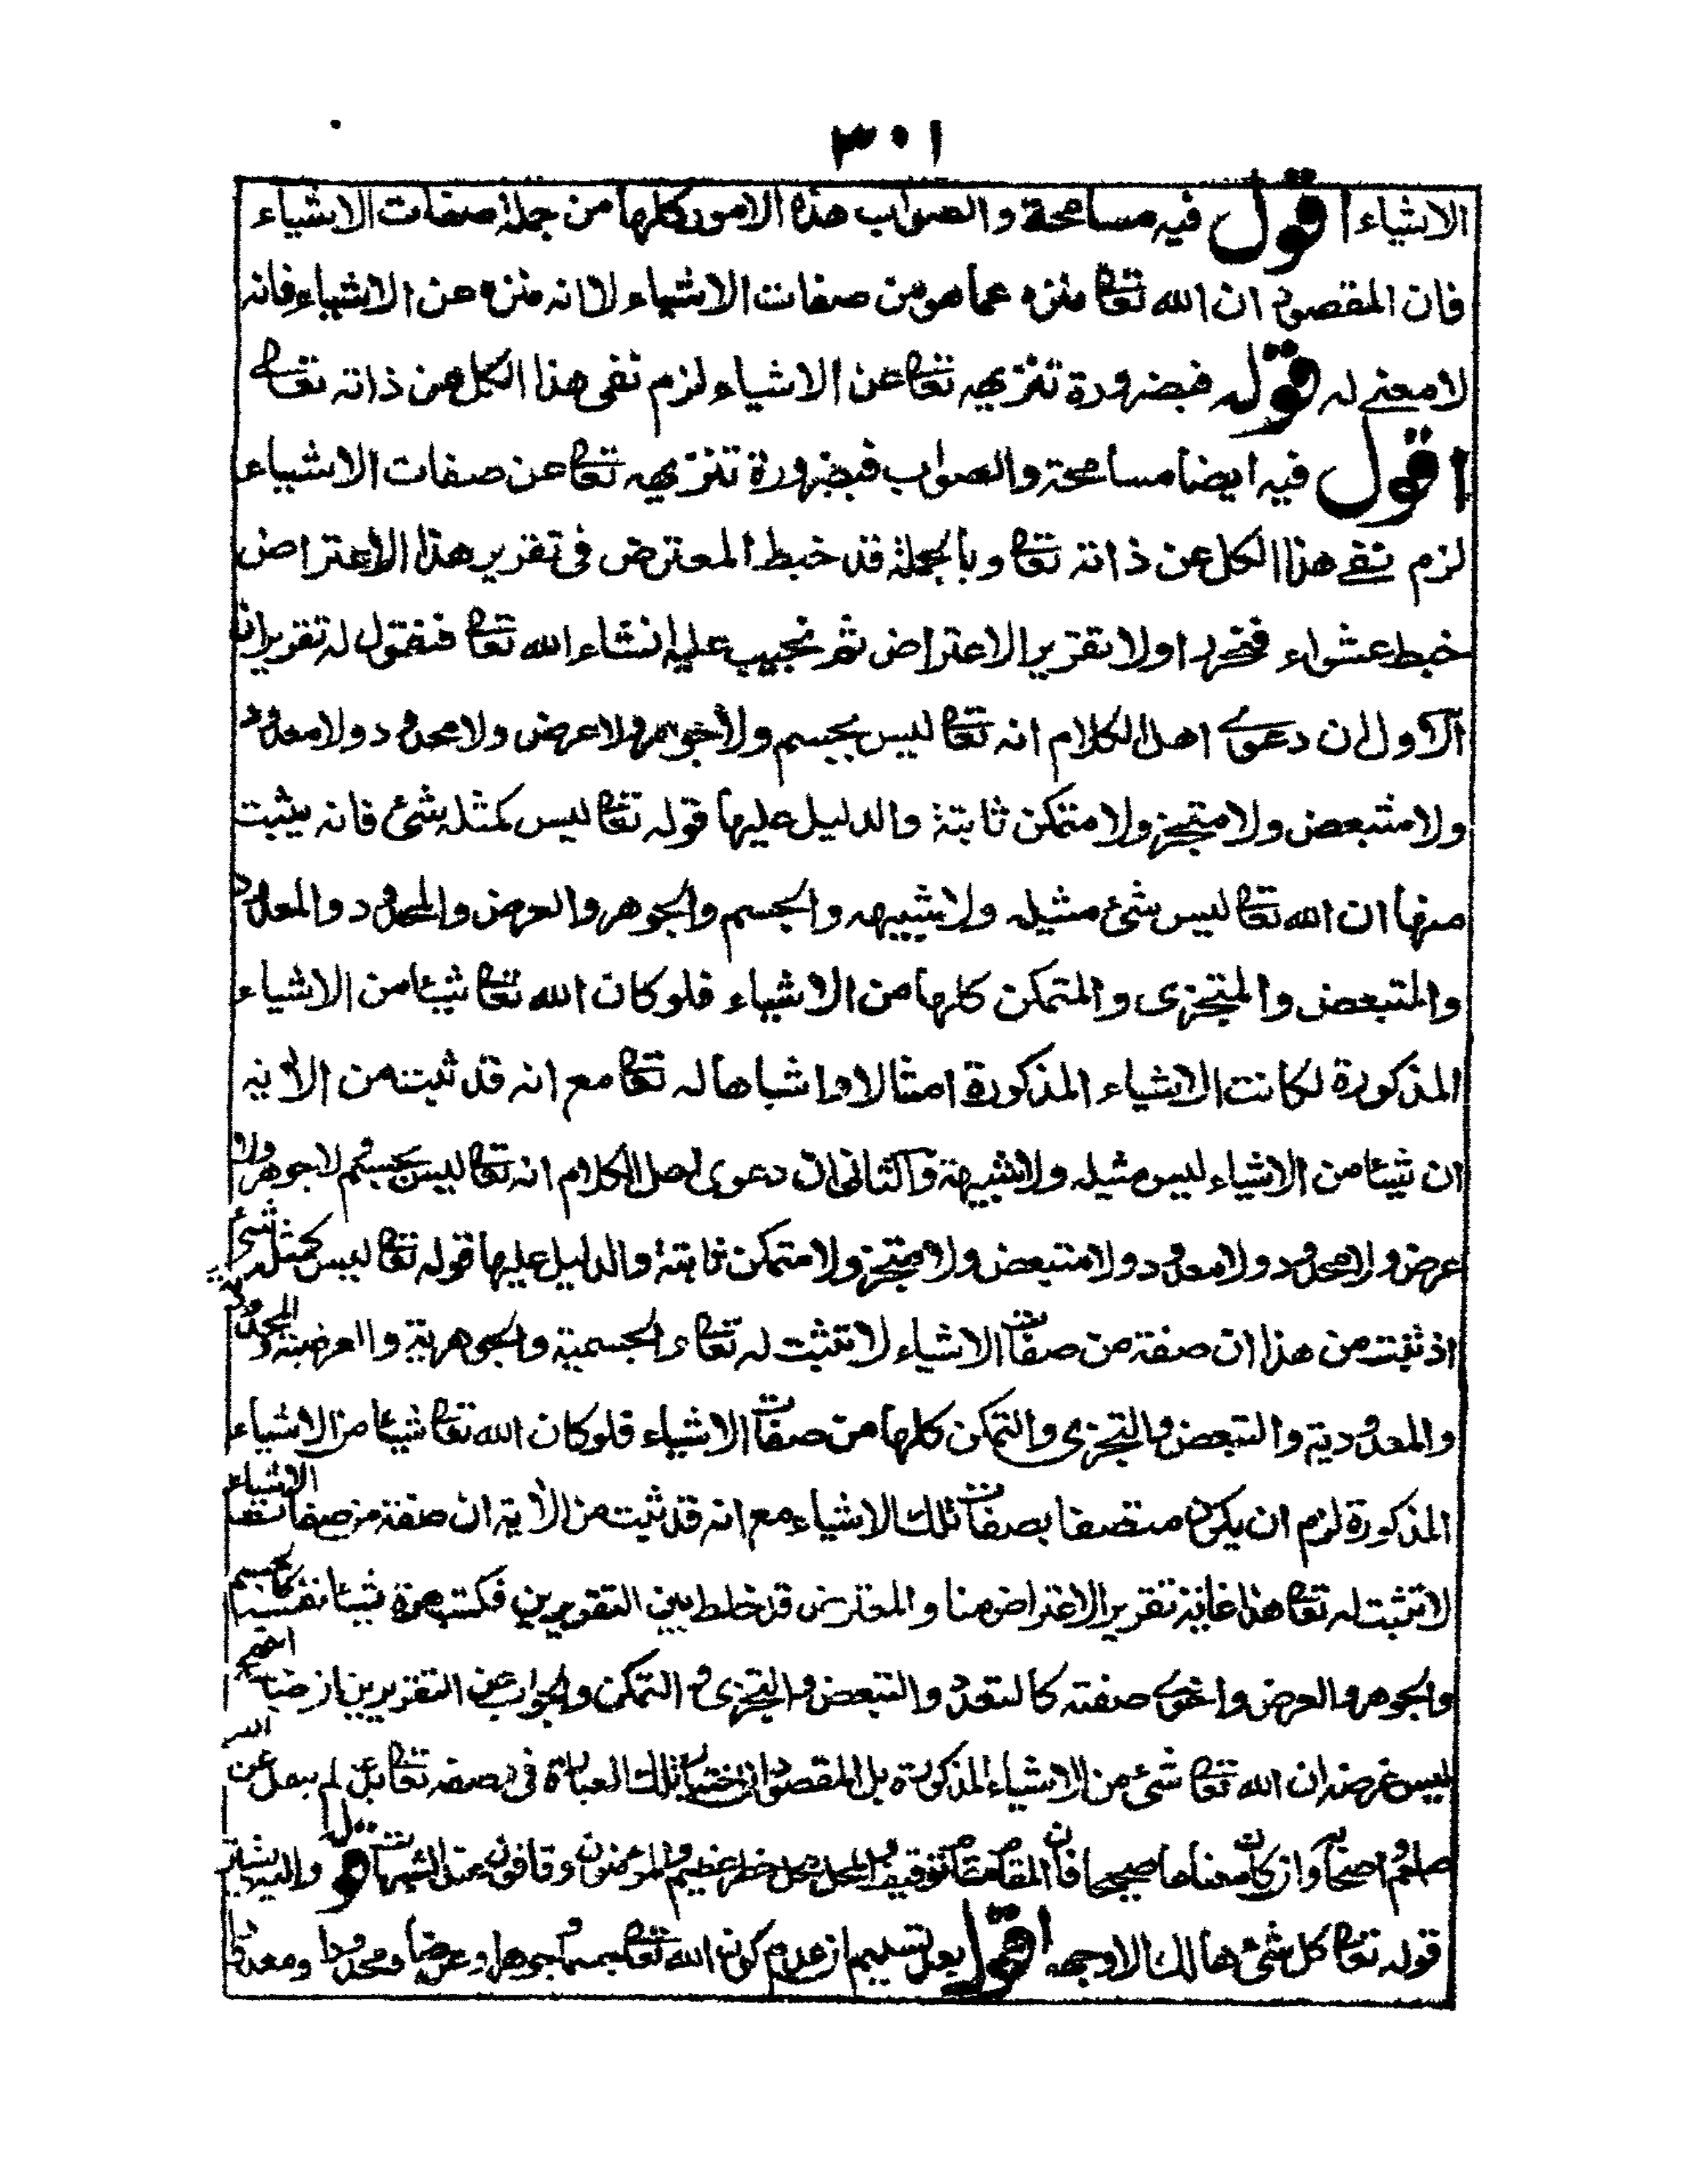 ٣٠١
الاشياء اقول فيه مسامحة والصواب هذه الامور كلها من جملة صفات الاشياء
فان المقصود ان الله تعا منزه عما هو من صفات الاشياء لا انه منزه عن الاشياء فانه
لا معنے له قوله فبضرورة تنزيهه تعا عن الاشياء لزم نفى هذا الكل عن ذاته تعالے
اقول فيه ايضا مسامحة والصواب فبضرورة تنزيهه تعا عن صفات الاشياء
لزم نفے هذا الكل عن ذاته تعا وبالجملة قد خبط المعترض فى تقرير هذا الاعتراض
خبط عشواء فنحرر اولا تقرير الاعتراض ثم نجيب عليه انشاء الله تعا فنقول له تقريران
الاول ان دعوے اهل الكلام انه تعا ليس بجسم ولا جوهر ولا عرض ولا محدود ولا معدود
ولا متبعض ولا متجز ولا متمكن ثابتة والدليل عليها قوله تعا ليس كمثله شئ فانه يثبت
منها ان الله تعا ليس شئ مثيله ولا شبيهه والجسم والجوهر والعرض والمحدود والمعدود
والمتبعض والمتجزى والمتمكن كلها من الاشياء فلو كان الله تعا شيئا من الاشياء
المذكورة لكانت الاشياء المذكورة امثالا واشباها له تعا مع انه قد ثبت من الآية
ان شيئا من الاشياء ليس مثيله ولا شبيهه والثانى ان دعوى اهل الكلام انه تعا ليس بجسم ولا جوهر ولا
عرض ولا محدود ولا معدود ولا متبعض ولا متجز ولا متمكن ثابتة والدليل عليها قوله تعا ليس كمثله شئ
اذ ثبت من هذا ان صفة من صفات الاشياء لا تثبت له تعا والجسمية والجوهرية والعرضية والمحدودية
والمعدودية والتبعض والتجزى والتمكن كلها من صفات الاشياء فلو كان الله تعا شيئا من الاشياء
المذكورة لزم ان يكون متصفا بصفات تلك الاشياء مع انه قد ثبت من الآية ان صفة من صفات الاشياء
لا تثبت له تعا هذا غاية تقرير الاعتراض هنا والمعترض قد خلط بين التقريرين فكتب مرة شيئا نفسه كالجسم
والجوهر والعرض واخرے صفته كالتعدد والتبعض والتجزى والتمكن والجواب عن التقريرين
ليس غرضه ان الله تعا شئ من الاشياء المذكورة بل المقصود ان اختيار تلك العبارة فى وصفه تعا
صلعم وان كان معناها صحيحا فان المقام مقام توقيف والمحل محل خطر عظيم والمؤمنون وقافون عند الشبهات قوله واليه يشير
قوله تعا كل شئ هالك الا وجهه اقول بعد تسليم ان عدم كون الله تعا جسما وجوهرا وعرضا ومحدودا ومعدودا